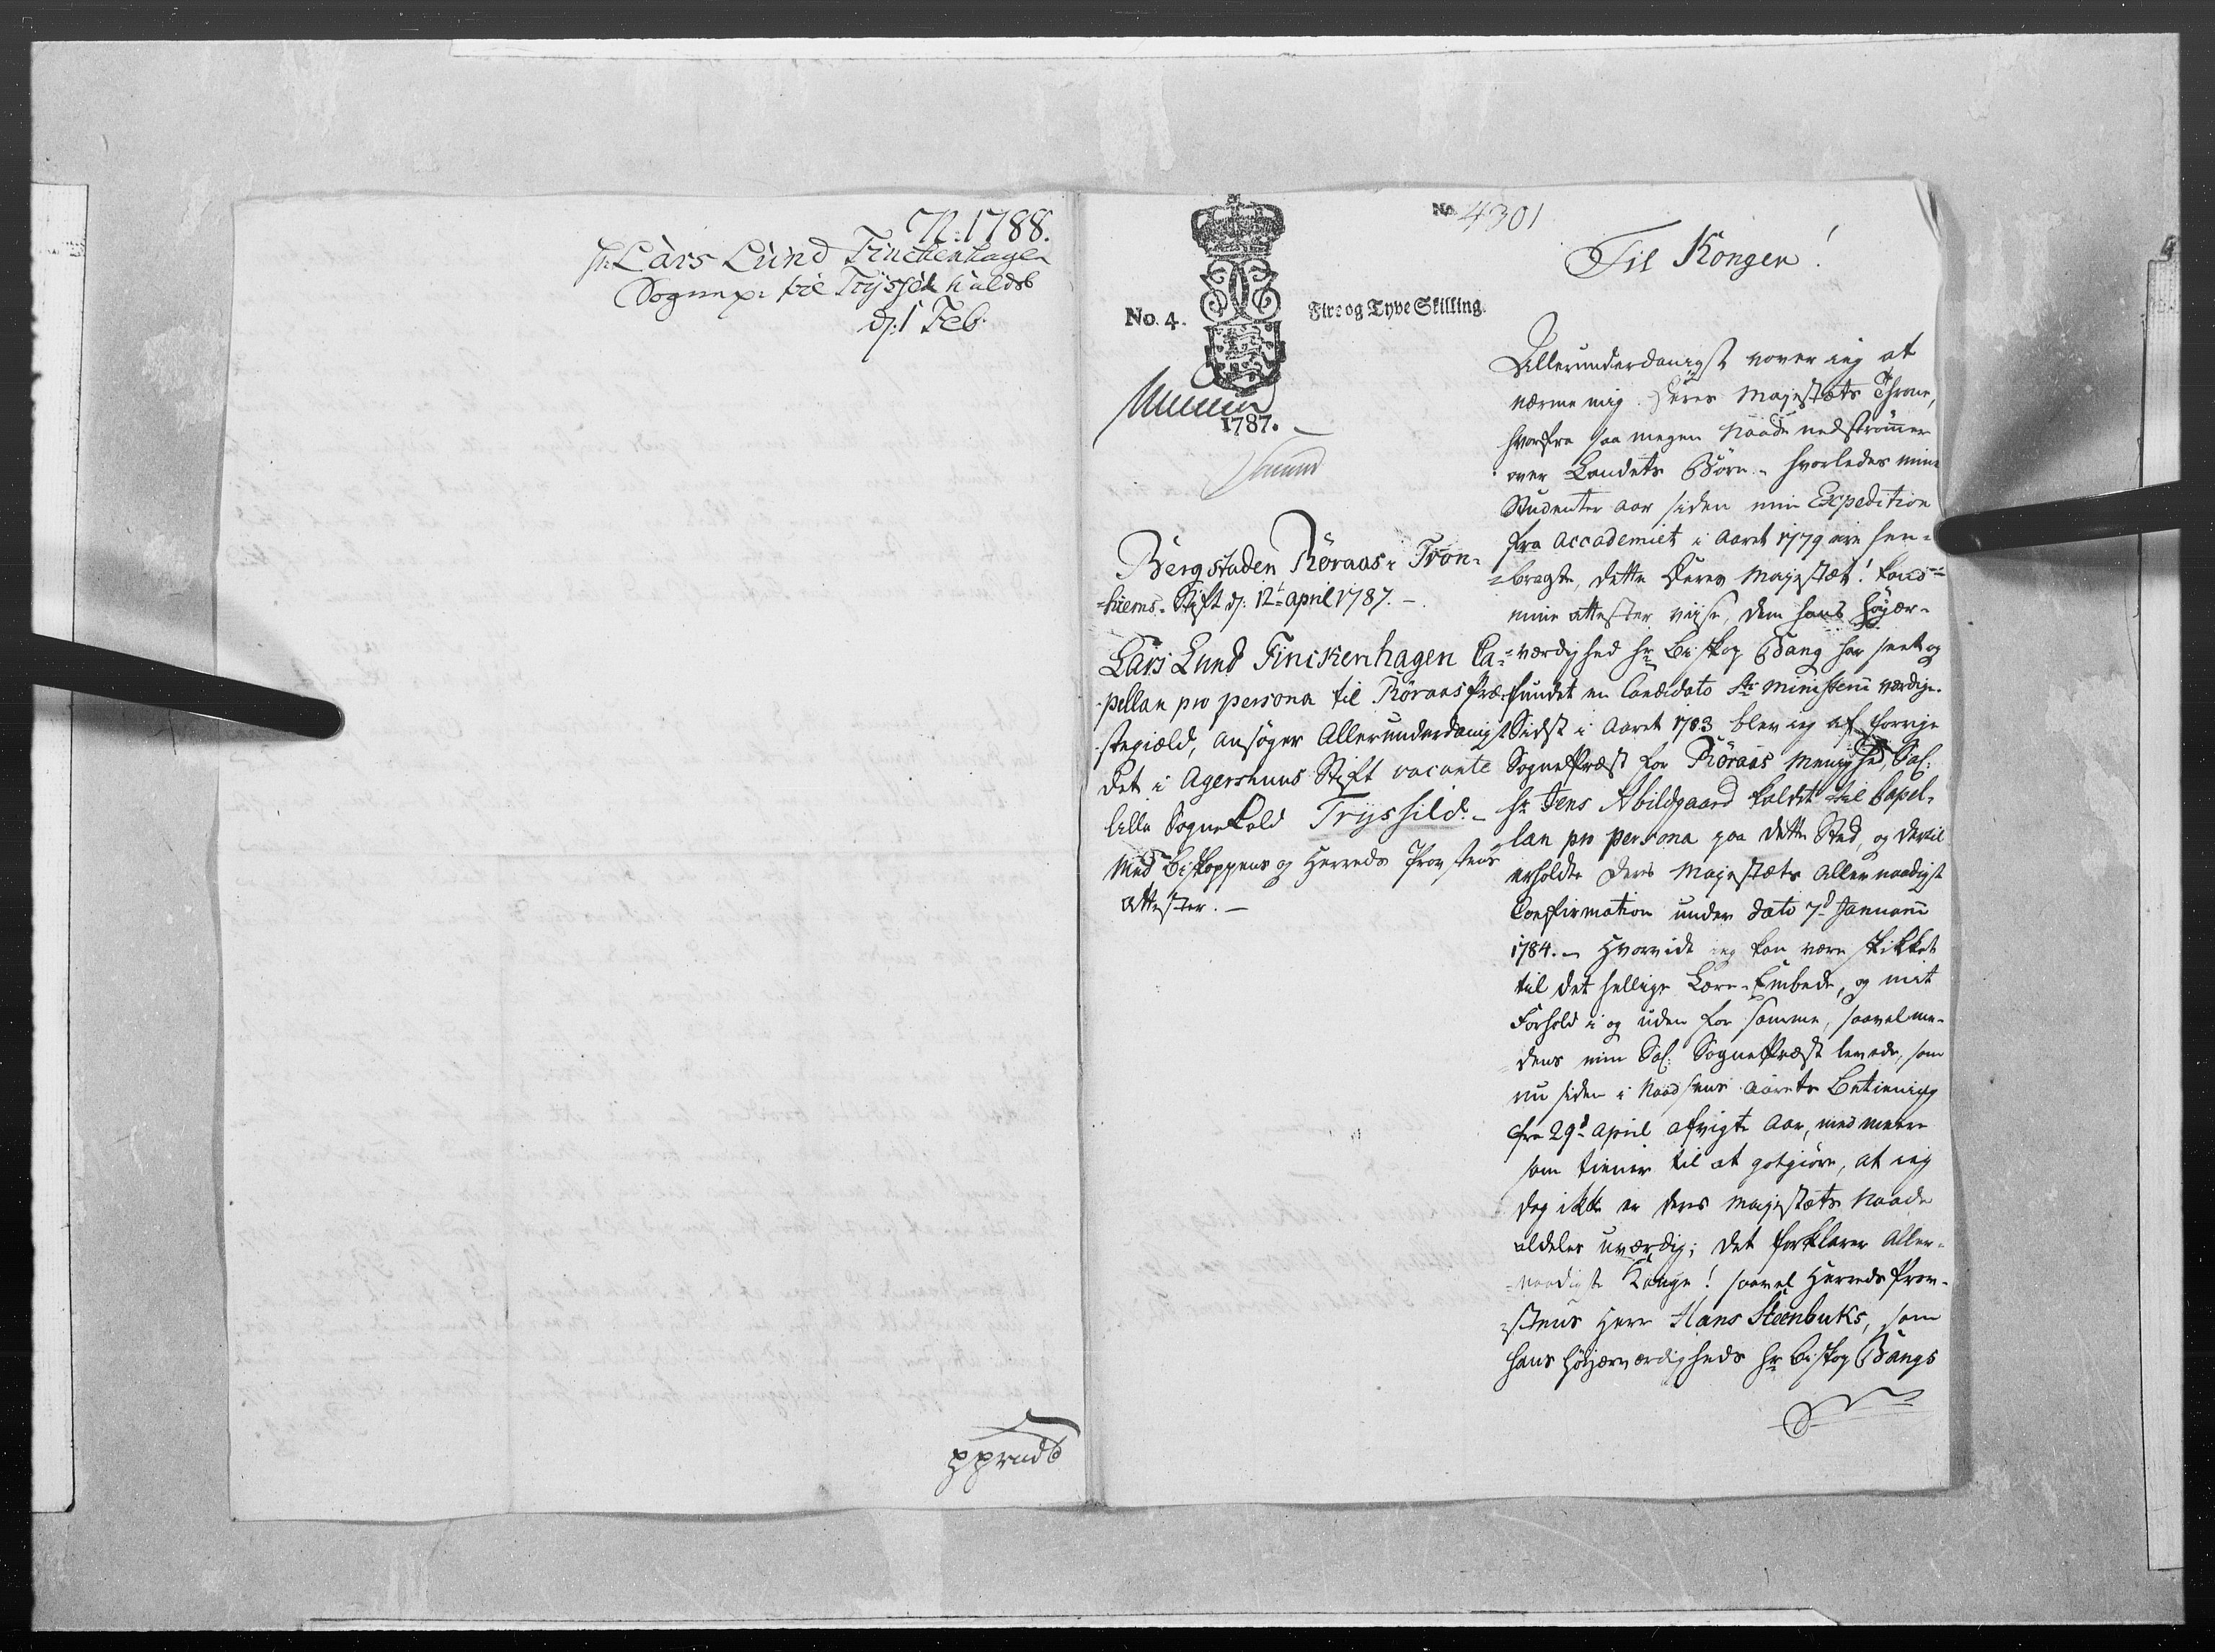 N: 1788.
Hr: Lars Lund Finckenhagen
Sognepr: til Tryssild kaldsb
d: 1 Feb.
pprudt
No. 4301
No. 4.
Fire og Tyve Skilling.
1787.
Bergstaden Röraas i Tron-
=hiems Stift d: 12t april 1787.
Lars Lund Finckenhagen Ca-
pellan pro persona til Röraas Præ-
stegiæld, ansøger Allerunderdanigst
det i Agershuus Stift vacante
lille SogneKald Tryssild.
Med Biskoppens og Herreds Provstens
Attester.
Til Kongen!
Allerunderdanigst vover ieg at
nærme mig Deres Majestæts Throne,
hvorfra saa megen Naade nedströmer
over Landets Börn. hvorledes mine
Studenter aar siden min Expedition
fra Accademiet i Aaret 1779 ere hen-
=bragte, dette Deres Majestæt! kand
mine attester viise, dem hans Höyær-
værdighed Hr Biskop Bang har seet og
fundet en Candidato Sti Ministerii værdige.
Sidst i Aaret 1783 blev ieg af forrige
SognePræst for Röraas Menighed, Sal:
Hr Jens Abildgaard kaldet til Capel-
lan pro persona paa dette Sted, og dertil
erholdte Deres Majestæts Allernaadigst
Confirmation under dato 7d Januarii
1784. Hvorvidt ieg kan være skikket
til det hellige Lære-Embede, og mit
Forhold i og uden for samme, saavel me-
dens min Sal: SognePræst levede, som
nu siden i Naadsens Aarets Betiening
fra 29d April afvigte Aar, med meere
som tiener til at gotgiöre, at ieg
dog ikke er Deres Majestæts Naade
aldeles uværdig; det forklarer Aller-
=naadigste Konge! saavel Herreds Prov-
=stens Herr Hans Steenbuks, som
hans Höyærværdigheds Hr Biskop Bangs